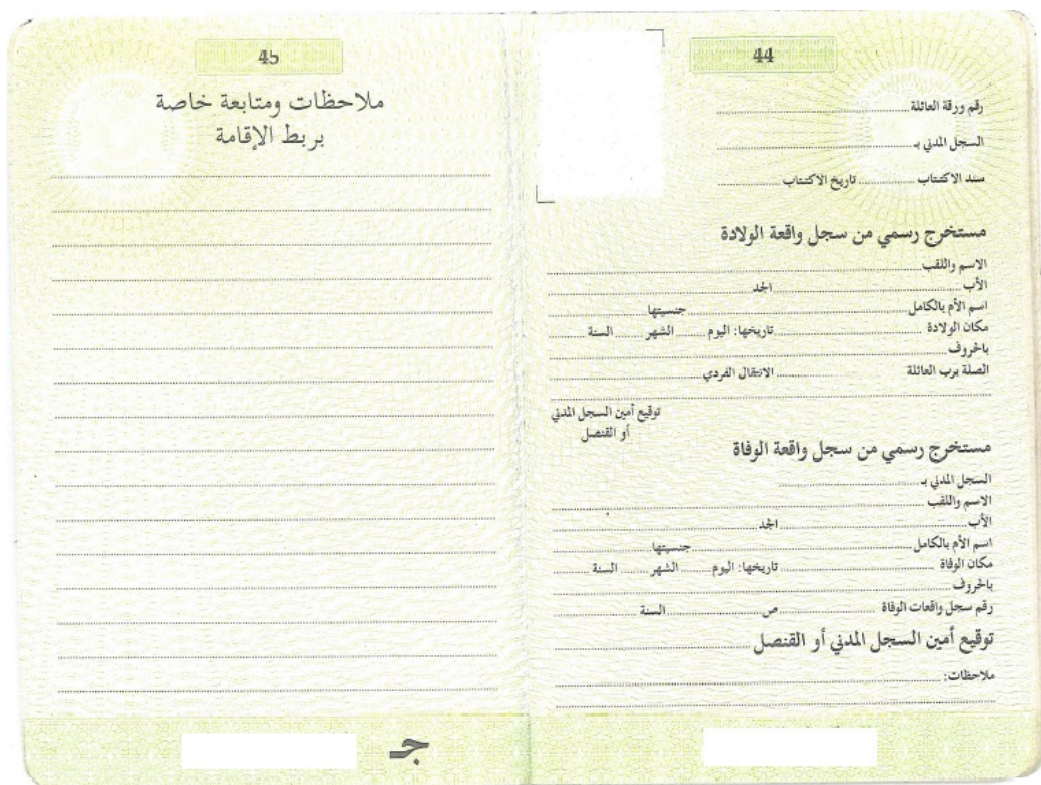 44
رقم ورقة العائلة
السجل المدني بـ
سند الاكتتاب تاريخ الاكتتاب
مستخرج رسمي من سجل واقعة الولادة
الاسم واللقب
الأب الجد
اسم الأم بالكامل جنسيتها
مكان الولادة تاريخها: اليوم الشهر السنة
بالحروف
الصلة برب العائلة الانتقال الفردي
توقيع أمين السجل المدني
أو القنصل
مستخرج رسمي من سجل واقعة الوفاة
السجل المدني بـ
الاسم واللقب
الأب الجد
اسم الأم بالكامل جنسيتها
مكان الوفاة تاريخها: اليوم الشهر السنة
بالحروف
رقم سجل واقعات الوفاة ص السنة
توقيع أمين السجل المدني أو القنصل
ملاحظات:
45
ملاحظات ومتابعة خاصة
بربط الإقامة
جـ